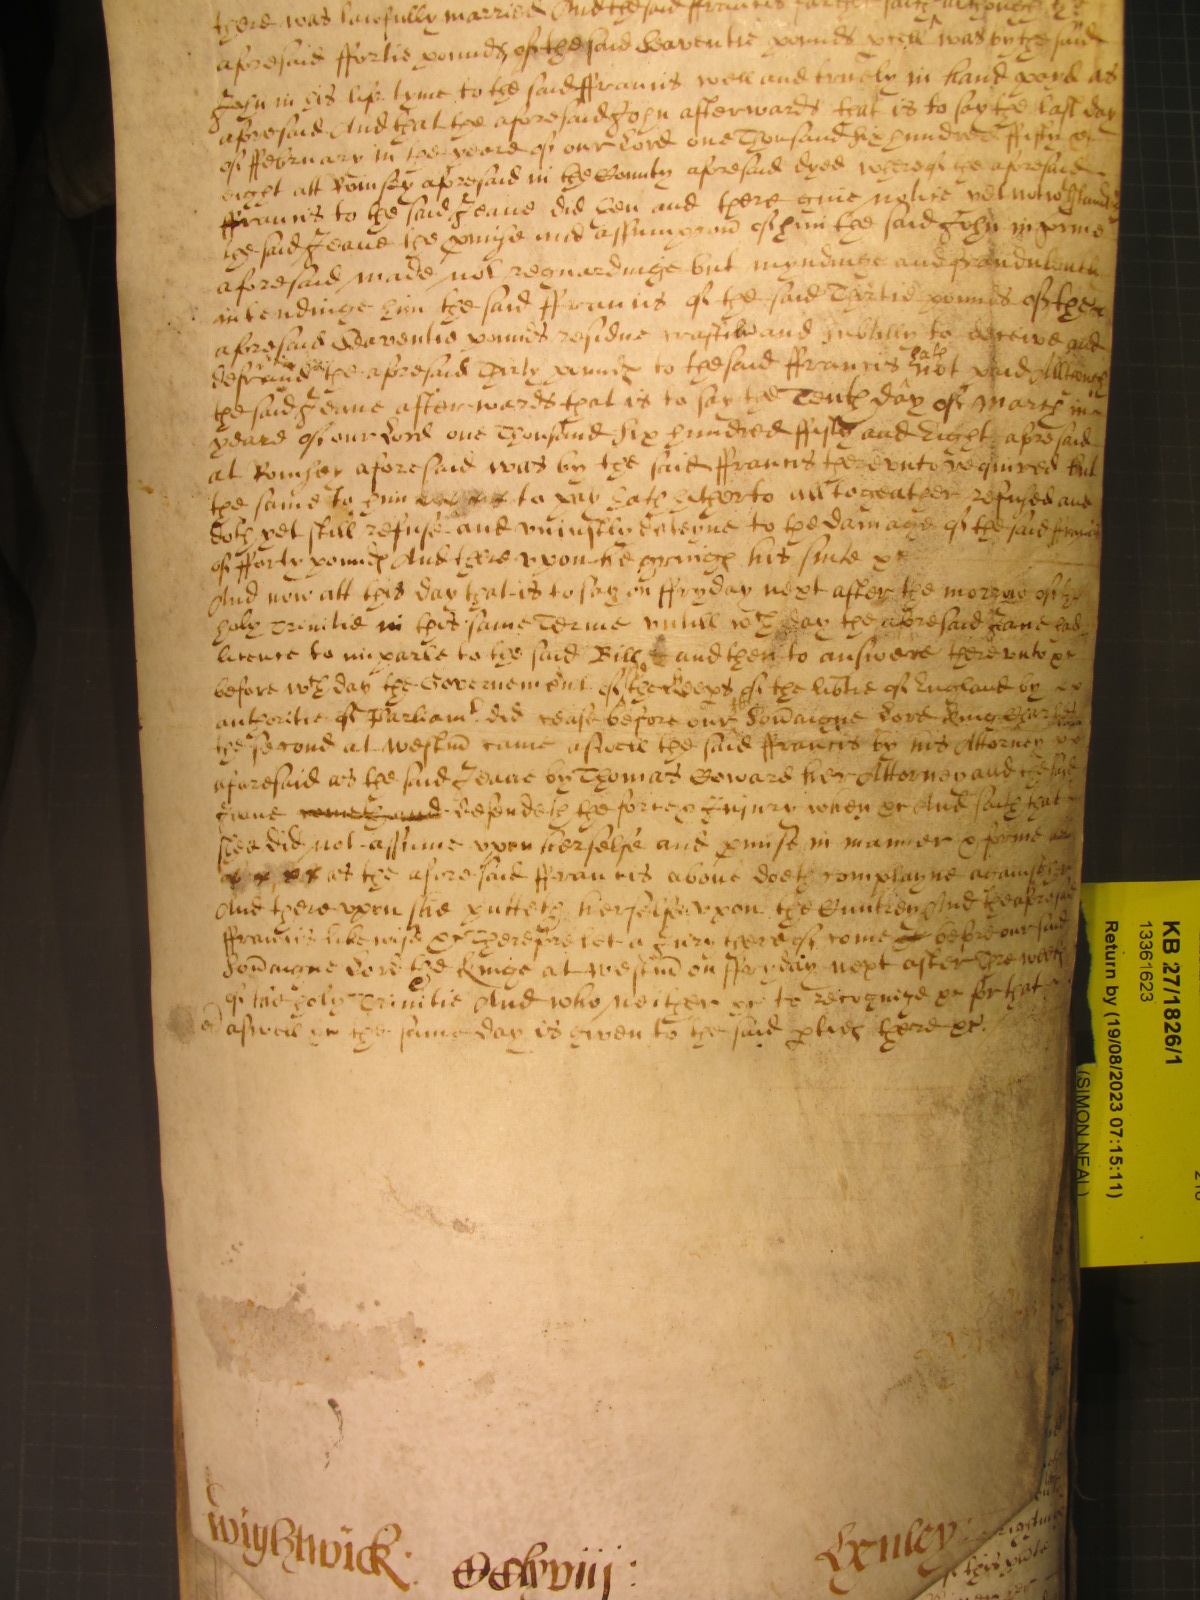 there was lawfully married And the said ffrancis further saith although the
aforesaid ffortie pounds of the said Seaventie pounds well was by the said
John in his life tyme to the said ffrancis well and truely in hand payd as
aforesaid And that the aforesaid John afterwards that is to say the last day
of ffebruary in the yeare of our Lord one Thousand six hundred ffifty &
eight att Romsey aforesaid in the County aforesaid dyed whereof the aforesaid
ffrancis to the said Jeane did then and there give notice yet notwthstandinge
the said Jeane the pmise and assumpcon of him the said John in forme
aforesaid made not reguardinge but myndinge and fraudulently
intendinge him the said ffrancis of the said Thirtie pounds of the
aforesaid Seaventie pounds residue craftily and subtilly to deceive and
defraud the aforesaid Thirty pounds to the said ffrancis hath not paid Although
the said Jeane afterwards that is to say the Tenth day of March in
yeare of our Lord one Thousand six hundred ffifty and Eight aforesaid
at Romsey aforesaid was by the said ffrancis therevnto required but
the same to him to pay hath hitherto alltogeather refused and
doth yet still refuse and vniustly deteyne to the damage of the said ffrancis
of fforty pounds And therevpon he bringeth his suite &c
And now att this day that is to say on ffryday next after the morrow of the
holy Trinitie in this same Terme vntill wch day the aforesaid Jane had
licence to imparle to the said Bill and then to answere therevnto &c
before wch day the Governement of the Keeps of the libtie of England by
authoritie of Parliamt did cease before our Soveraigne Lord King Charles
the second at Westm came aswell the said ffrancis by his Attorney
aforesaid as the said Jeane by Thomas Seward her Attorney and the said
Jeane defendeth the force & Injury when &c And saith that
shee did not assume vpon herselfe and pmise in manner & forme
as the aforesaid ffrancis above doeth complayne against her
And therevpon shee putteth herselfe vpon the Cuntrey And the aforesaid
ffrancis likewise &c Therefore let a Jury thereof come before our said
Soveraigne Lord the Kinge at Westm on ffryday next after Three weeks
of the holy Trinitie And who neither &c to recognize &c for that
aswell &c the same day is given to the said pties there &c.
Wightwick:
Lxnley:
KB 27/1826/1
13361623
Return by (19/08/2023 07:15:11)
(SIMON NEAL)